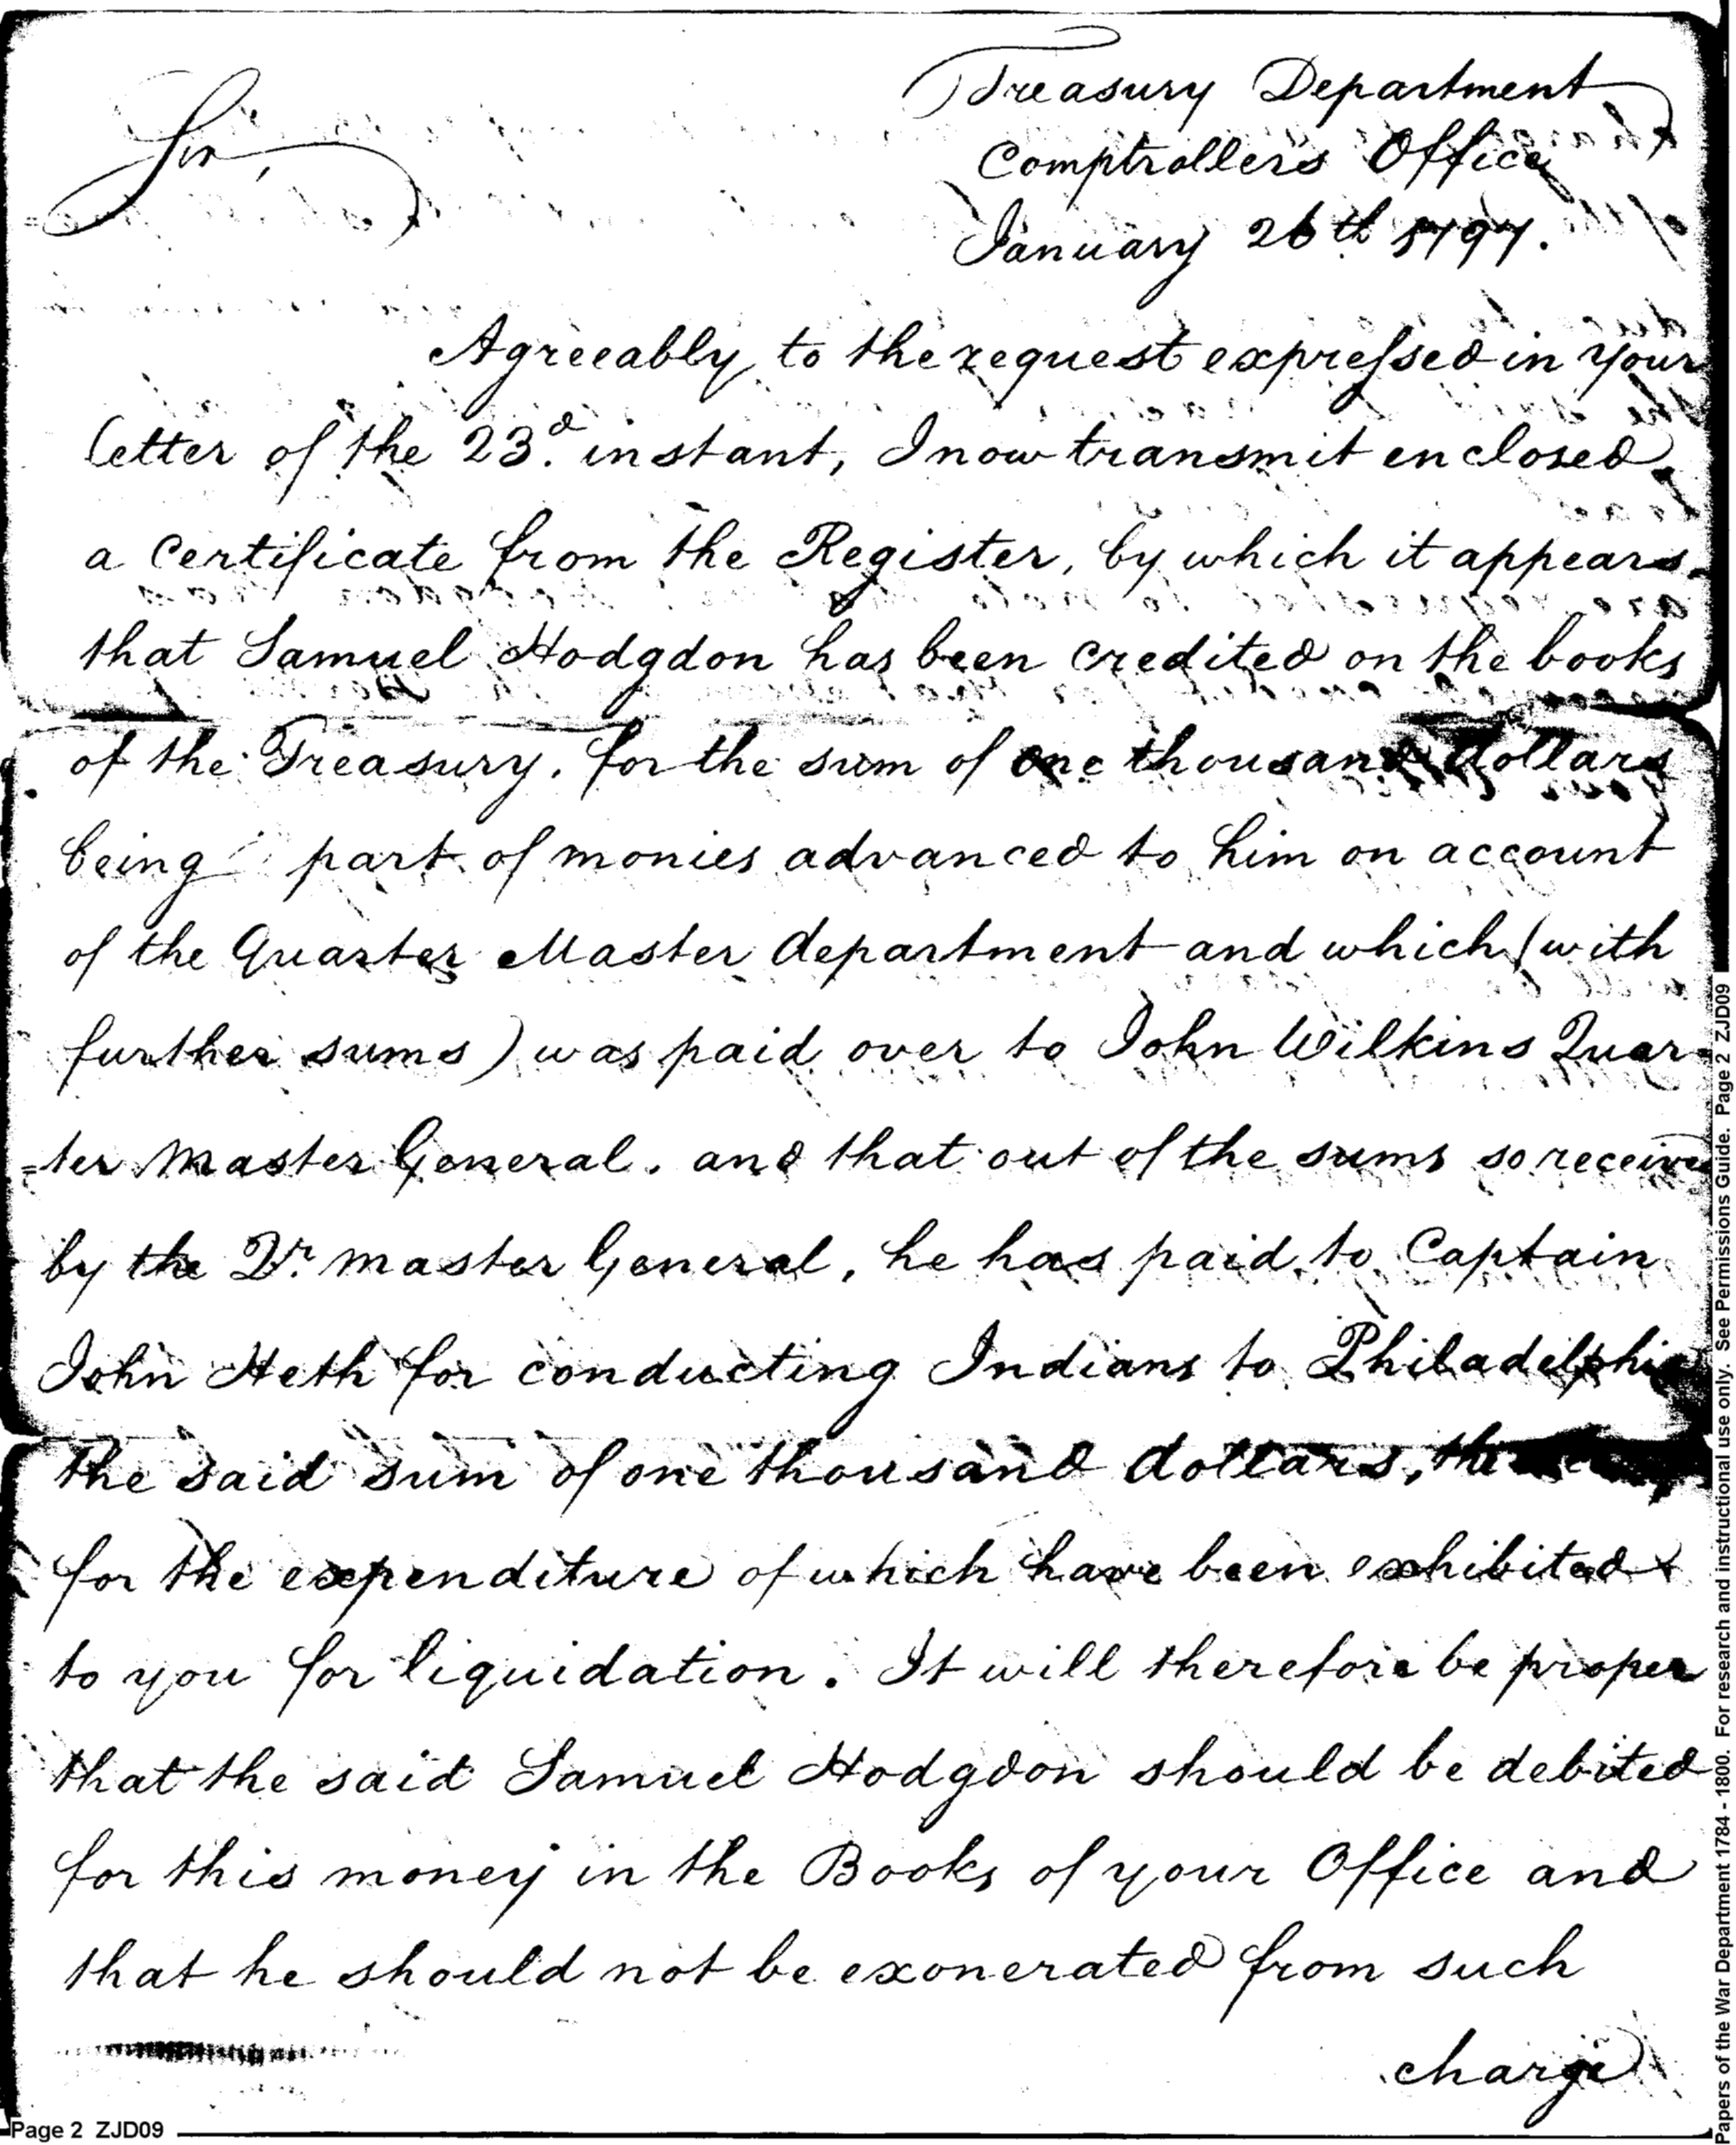 Treasury Department
Comptroller's Office
January 26th 1797.
Sir,
Agreeably to the request expressed in your
letter of the 23.d instant, I now transmit enclosed
a Certificate from the Register, by which it appears
that Samuel Hodgdon has been credited on the books
of the Treasury, for the sum of one thousand dollars
being part of monies advanced to him on account
of the Quarter Master department and which (with
further sums) was paid over to John Wilkins Quar-
=ter Master General. and that out of the sums so received
by the Qr. master General, he has paid to Captain
John Heth for conducting Indians to Philadelphia
the said sum of one thousand dollars, the
for the expenditure of which have been exhibited
to you for liquidation. It will therefore be proper
that the said Samuel Hodgdon should be debited
for this money in the Books of your Office and
that he should not be exonerated from such
charge
Page 2 ZJD09
Papers of the War Department 1784 - 1800. For research and instructional use only. See Permissions Guide. Page 2 ZJD09